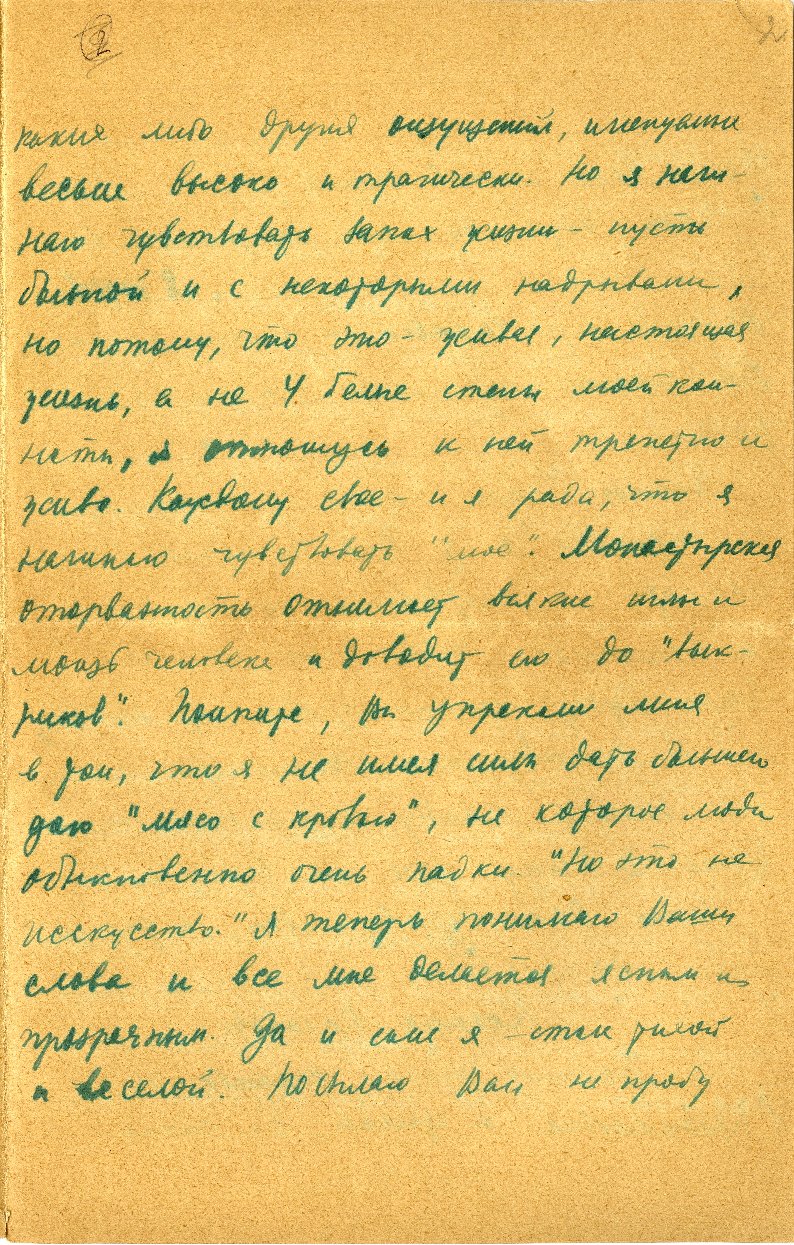 2 2
какия либо другия ощущений, именуемыи
весьме высоко и трагически. Но я начи-
наю чувствовать запах жизни – пусть
больной и с некоторыми надрывами,
но потому, что это – живая, настоящая
жизнь, а не 4 белые стены моей ком-
наты, я отношусь к ней трепетно и
живо. Каждому свое – и я рада, что я
начинаю чувствовать "мое". Монастырская
оторванность отнимает всякие силы и
мозгъ человека и доводит его до "вык-
риков". Помните, Вы упрекали меня
в том, что я не имея силы дать большего
даю "мясо с кровью", на которое люди
обыкновенно очень падки. "Но это не
исскусство." Я теперь понимаю Ваши
слова и все мне делается ясным и
прозрачным. Да и сама я стала тихой
и веселой. Посылаю Вам на пробу